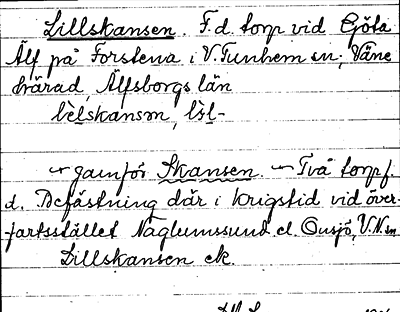 Lillskansen. F.d. torp vid Göta
Älf på Forstena i V. Tunhem sn; Väne
härad, Älfsborgs län
lèlskansm, lèl-
jämför Skansen. — Två torp f.
d. Befästning där i krigstid vid över-
fartsstället Naglumssund el. Onsjö, V.N. sn
Lillskansen ek